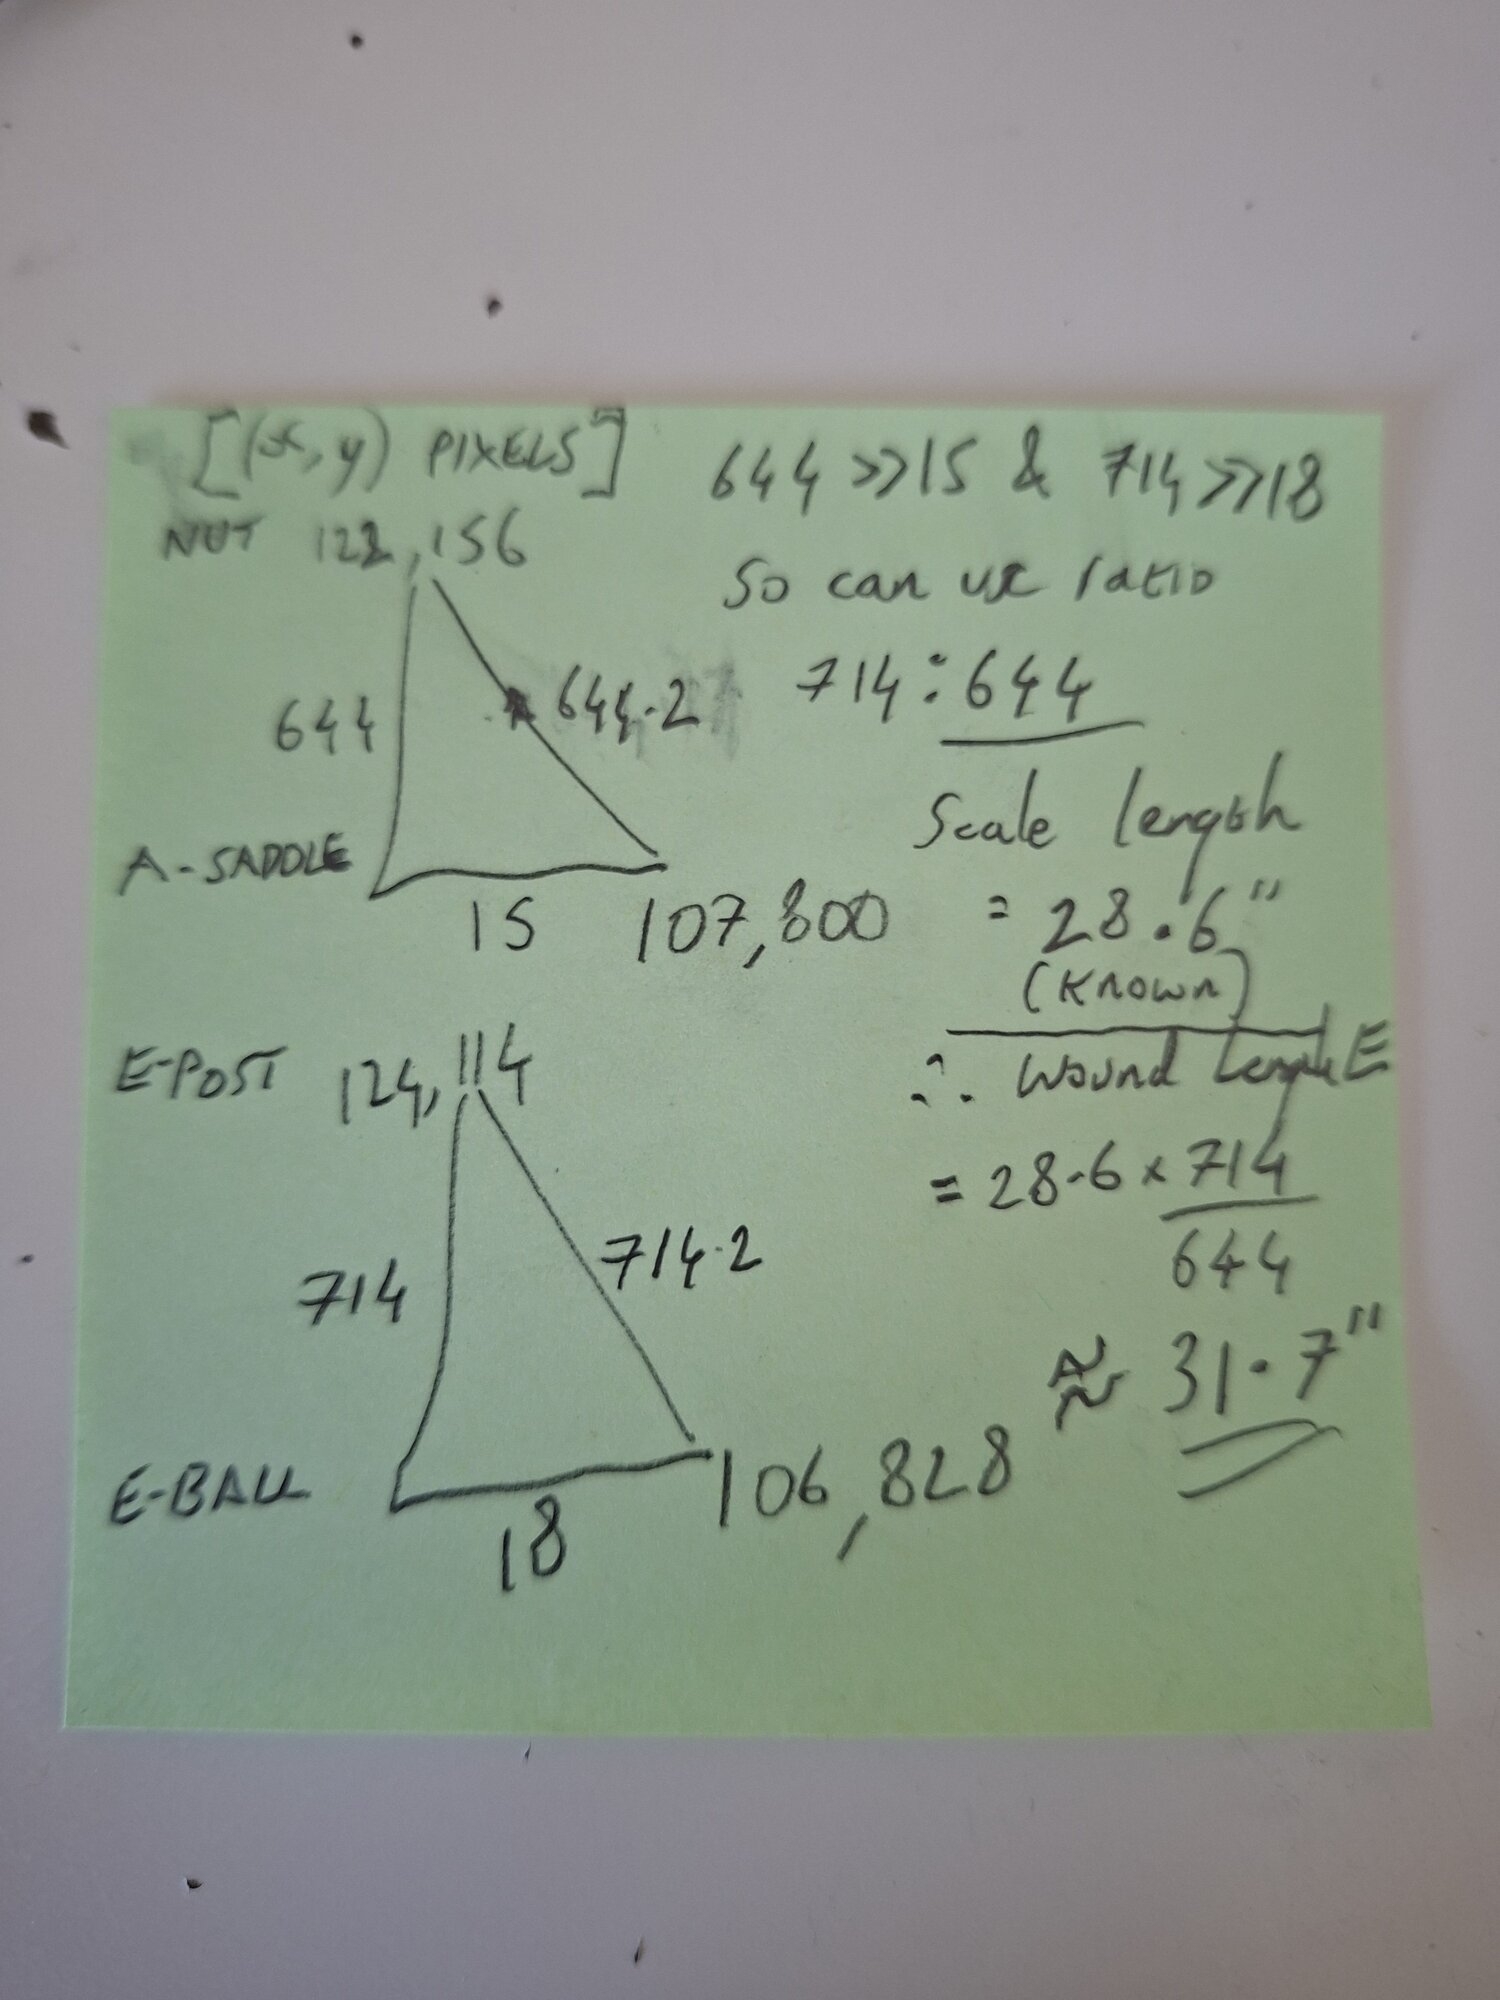 [(x, y) PIXELS]
NUT 122, 156
644
644.2
A-SADDLE
15
107, 800
E-POST 124, 114
714
714.2
E-BALL
18
106, 828
644 >> 15 & 714 >> 18
So can use ratio
714 : 644
Scale length
= 28.6"
(Known)
∴ Wound Length E
= 28.6 × 714
644
≈ 31.7"